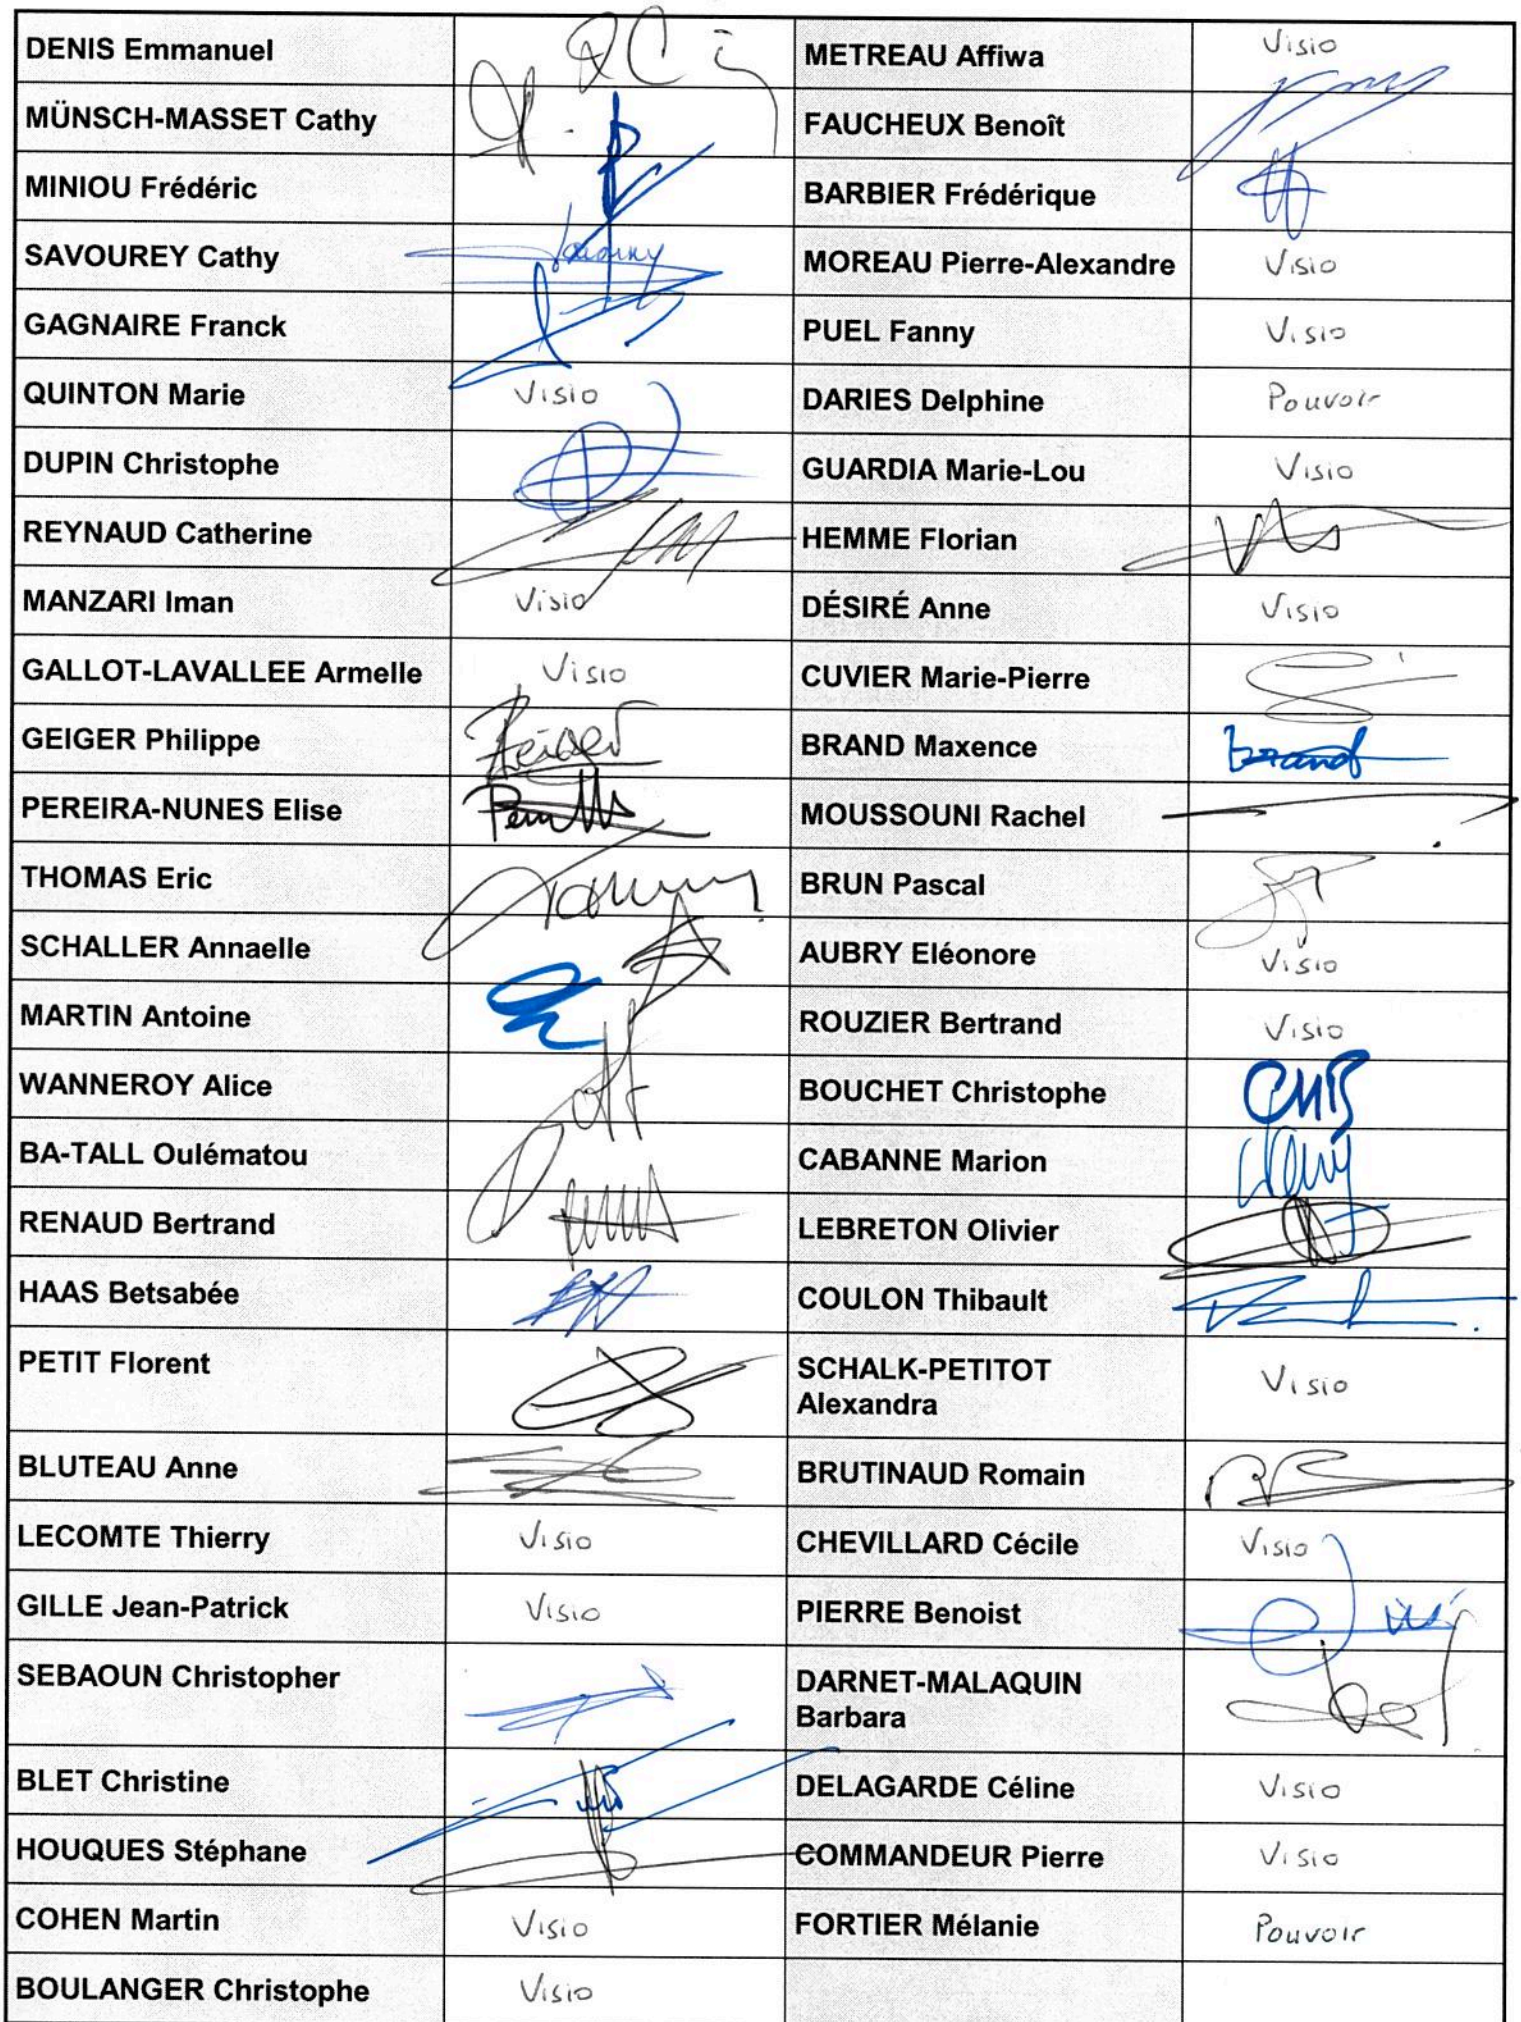 DENIS Emmanuel
METREAU Affiwa Visio
MÜNSCH-MASSET Cathy
FAUCHEUX Benoît
MINIOU Frédéric
BARBIER Frédérique
SAVOUREY Cathy
MOREAU Pierre-Alexandre Visio
GAGNAIRE Franck
PUEL Fanny Visio
QUINTON Marie Visio
DARIES Delphine Pouvoir
DUPIN Christophe
GUARDIA Marie-Lou Visio
REYNAUD Catherine
HEMME Florian
MANZARI Iman Visio
DÉSIRÉ Anne Visio
GALLOT-LAVALLEE Armelle Visio
CUVIER Marie-Pierre
GEIGER Philippe Geiger
BRAND Maxence Brand
PEREIRA-NUNES Elise
MOUSSOUNI Rachel
THOMAS Eric
BRUN Pascal
SCHALLER Annaelle
AUBRY Eléonore Visio
MARTIN Antoine
ROUZIER Bertrand Visio
WANNEROY Alice
BOUCHET Christophe CHB
BA-TALL Oulématou
CABANNE Marion
RENAUD Bertrand
LEBRETON Olivier
HAAS Betsabée
COULON Thibault
PETIT Florent
SCHALK-PETITOT
Alexandra Visio
BLUTEAU Anne
BRUTINAUD Romain
LECOMTE Thierry Visio
CHEVILLARD Cécile Visio
GILLE Jean-Patrick Visio
PIERRE Benoist
SEBAOUN Christopher
DARNET-MALAQUIN
Barbara
BLET Christine
DELAGARDE Céline Visio
HOUQUES Stéphane
COMMANDEUR Pierre Visio
COHEN Martin Visio
FORTIER Mélanie Pouvoir
BOULANGER Christophe Visio